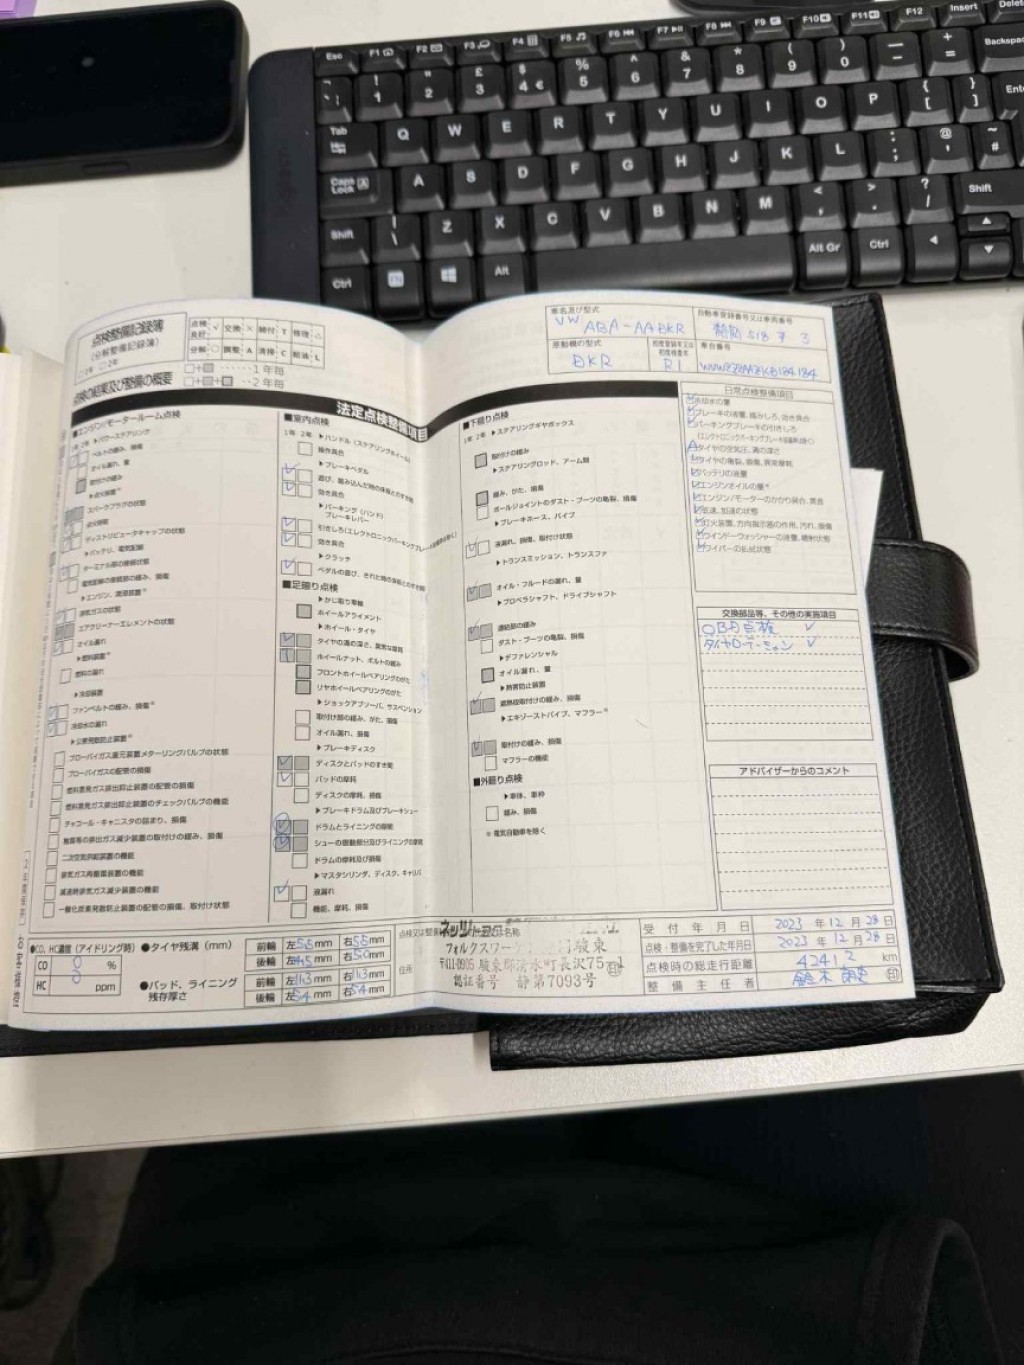 点検整備記録簿
(分解整備記録簿)
□1年 □2年
点検良好 ✓ 交換 × 締付 T 修理 △
分解 ○ 調整 A 清掃 C 給油 L
□+■ ・・・・・・1年毎
□+■+■ ・・2年毎
点検の結果及び整備の概要
車名及び型式
VW ABA-AADKR
自動車登録番号又は車両番号
518
3
原動機の型式
DKR
初度登録年又は初度検査年
R1
車台番号
法定点検整備項目
■エンジン/モータールーム点検
1年 2年 ▶パワーステアリング
ベルトの緩み、損傷
オイル漏れ、量
取付けの緩み
▶点火装置※
スパークプラグの状態
点火時期
ディストリビュータキャップの状態
▶バッテリ、電気配線
ターミナル部の接続状態
電気配線の接続部の緩み、損傷
▶エンジン、潤滑装置※
排気ガスの状態
エアクリーナーエレメントの状態
オイル漏れ
▶燃料装置※
燃料の漏れ
▶冷却装置
ファンベルトの緩み、損傷※
冷却水の漏れ
▶公害発散防止装置※
ブローバイガス還元装置メターリングバルブの状態
ブローバイガスの配管の損傷
燃料蒸発ガス排出抑止装置の配管の損傷
燃料蒸発ガス排出抑止装置のチェックバルブの機能
チャコール・キャニスタの詰まり、損傷
触媒等の排出ガス減少装置の取付けの緩み、損傷
二次空気供給装置の機能
排気ガス再循環装置の機能
減速時排気ガス減少装置の機能
一酸化炭素発散防止装置の配管の損傷、取付け状態
■室内点検
1年 2年 ▶ハンドル(ステアリングホイール)
操作具合
▶ブレーキペダル
遊び、踏み込んだ時の床板とのすき間
効き具合
▶パーキング(ハンド)
ブレーキレバー
引きしろ(エレクトロニックパーキングブレーキ装備車は除く)
効き具合
▶クラッチ
ペダルの遊び、きれた時の床板とのすき間
■足廻り点検
▶かじ取り車輪
ホイールアライメント
▶ホイール・タイヤ
タイヤの溝の深さ、異常な摩耗
ホイールナット、ボルトの緩み
フロントホイールベアリングのがた
リヤホイールベアリングのがた
▶ショックアブソーバ、サスペンション
取付け部の緩み、がた、損傷
オイル漏れ、損傷
▶ブレーキディスク
ディスクとパッドのすき間
パッドの摩耗
ディスクの摩耗、損傷
▶ブレーキドラム及びブレーキシュー
ドラムとライニングの隙間
シューの摺動部分及びライニングの摩耗
ドラムの摩耗及び損傷
▶マスタシリンダ、ディスク、キャリパ
液漏れ
機能、摩耗、損傷
■下廻り点検
1年 2年 ▶ステアリングギヤボックス
取付けの緩み
▶ステアリングロッド、アーム類
緩み、がた、損傷
ボールジョイントのダスト・ブーツの亀裂、損傷
▶ブレーキホース、パイプ
液漏れ、損傷、取付け状態
▶トランスミッション、トランスファ
オイル・フルードの漏れ、量
▶プロペラシャフト、ドライブシャフト
連結部の緩み
ダスト・ブーツの亀裂、損傷
▶デファレンシャル
オイル漏れ、量
▶熱害防止装置
遮熱板取付けの緩み、損傷
▶エキゾーストパイプ、マフラー※
取付けの緩み、損傷
マフラーの機能
■外廻り点検
▶車体、車枠
緩み、損傷
※電気自動車を除く
日常点検整備項目
冷却水の量
ブレーキの液量、踏みしろ、効き具合
パーキングブレーキの引きしろ
(エレクトロニックパーキングブレーキ装備車は除く)
A タイヤの空気圧、溝の深さ
タイヤの亀裂、損傷、異常摩耗
バッテリの液量
エンジンオイルの量※
エンジン/モーターのかかり具合、異音
低速、加速の状態
灯火装置、方向指示器の作用、汚れ、損傷
ウインドーウォッシャーの液量、噴射状態
ワイパーの払拭状態
交換部品等、その他の実施項目
OBD点検 ✓
タイヤローテーション ✓
アドバイザーからのコメント
●CO、HC濃度(アイドリング時)
CO 0 %
HC 0 ppm
●タイヤ残溝(mm)
前輪 左5.5mm 右5.5mm
後輪 左4.5mm 右5.0mm
●パッド、ライニング残存厚さ
前輪 左11.3mm 右11.3mm
後輪 左5.4mm 右5.4mm
住所
〒411-0905 駿東郡清水町長沢75
認証番号 静第7093号
受付年月日 2023年12月28日
点検・整備を完了した年月日 2023年12月28日
点検時の総走行距離 42412 km
整備主任者 鈴木 印
お客様控